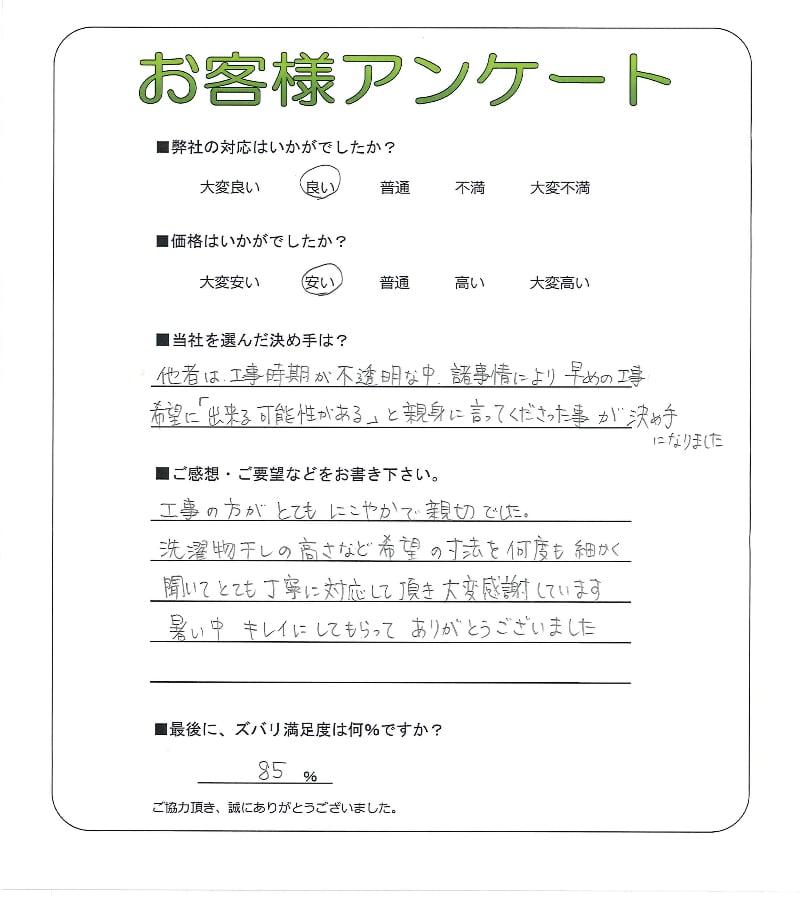 お客様アンケート
■弊社の対応はいかがでしたか？
大変良い 良い 普通 不満 大変不満
■価格はいかがでしたか？
大変安い 安い 普通 高い 大変高い
■当社を選んだ決め手は？
他者は、工事時期が不透明な中、諸事情により早めの工事
希望に「出来る可能性がある」と親身に言ってくださった事が決め手
になりました
■ご感想・ご要望などをお書き下さい。
工事の方がとてもにこやかで親切でした。
洗濯物干しの高さなど希望の寸法を何度も細かく
聞いてとても丁寧に対応して頂き大変感謝しています
暑い中 キレイにしてもらって ありがとうございました
■最後に、ズバリ満足度は何%ですか？
85 %
ご協力頂き、誠にありがとうございました。